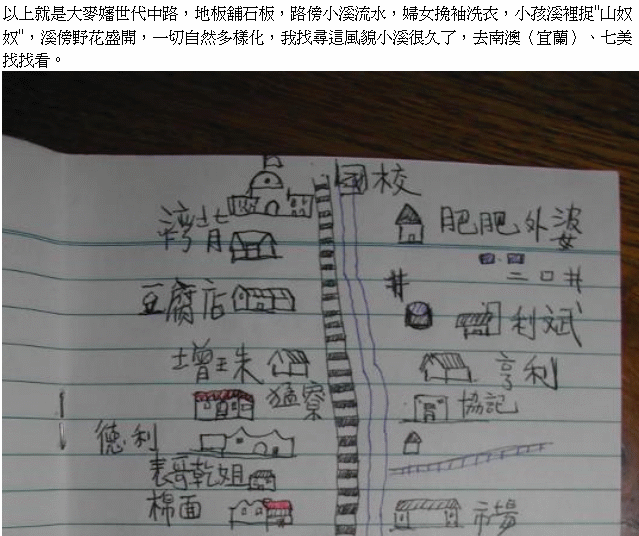 以上就是大麥嬸世代中路，地板舖石板，路傍小溪流水，婦女挽袖洗衣，小孩溪裡捉"山奴
奴"，溪傍野花盛開，一切自然多樣化，我找尋這風貌小溪很久了，去南澳（宜蘭）、七美
找找看。
國校
肥肥外婆
灣背
二口井
豆腐店
利斌
增珠
亨利
猛寮
協記
德利
表哥乾姐
棉面
市場